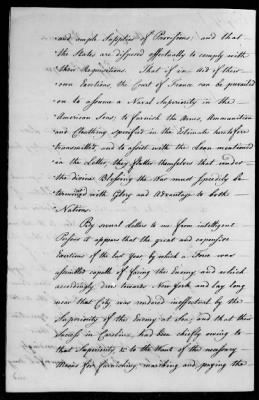 and ample Supplies of Provisions; and that
the States are disposed effectually to comply with
their Requisitions. That if in aid of their
own Exertions, the Court of France can be prevailed
on to assume a Naval Superiority in the
American Seas; to furnish the Arms, Ammunition
and Cloathing specified in the Estimate heretofore
transmitted, and to assist with the Loan mentioned
in the Letter; they flatter themselves that under
the divine Blessing the War must speedily be
terminated with Glory and Advantage to both
Nations.
By several Letters to me from intelligent
Persons it appears that the great and expensive
Exertions of the last Year by which a Force was
assembled capable of facing the Enemy and which
accordingly drew towards New York and lay long
near that City was rendered ineffectual by the
Superiority of the Enemy at Sea; and that their
Success in Carolina had been chiefly owing to
that Superiority, & to the Want of the necessary
Means for furnishing, marching and paying the